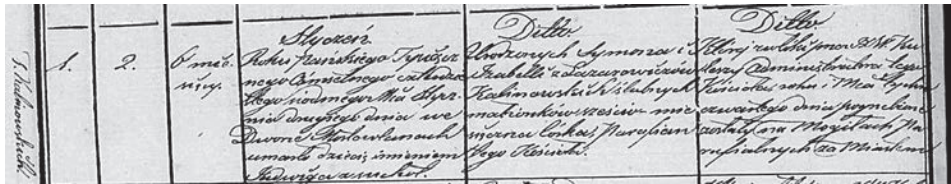 J. Kalinowskich
1.
2.
6 mie-
sięcy.
Styczeń
Roku Pańskiego Tysiącz-
nego Ośmsetnego
siódmego Mca Stycz-
nia drugiego dnia we
Dworze
umarło dziecie imieniem
Jadwiga z suchot.
Ditto
Urodzonych Symona i
Izabelli z Łazarowiczów
Kalinowskich ślubnych
małżonków sześcio mie-
sięczna córka, Parafianin
tego Kościoła.
Ditto.
Której zwłoki przez JX
Administratora tego
Kościoła roku i Mca Stycznia
czwartego dnia pogrzebane
zostały na Mogiłach Pa-
rafialnych za Miastem